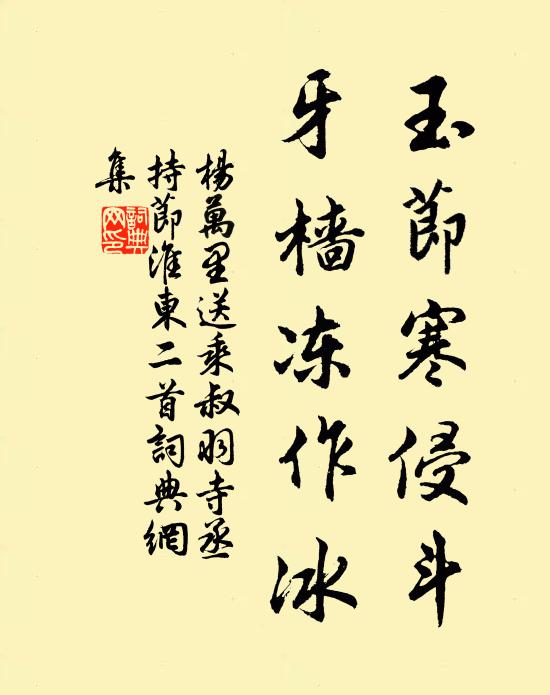 玉節寒侵斗
牙檣冻作冰
楊萬里送乘叔明寺丞
持節淮東二首詞典網
集
詞典网印